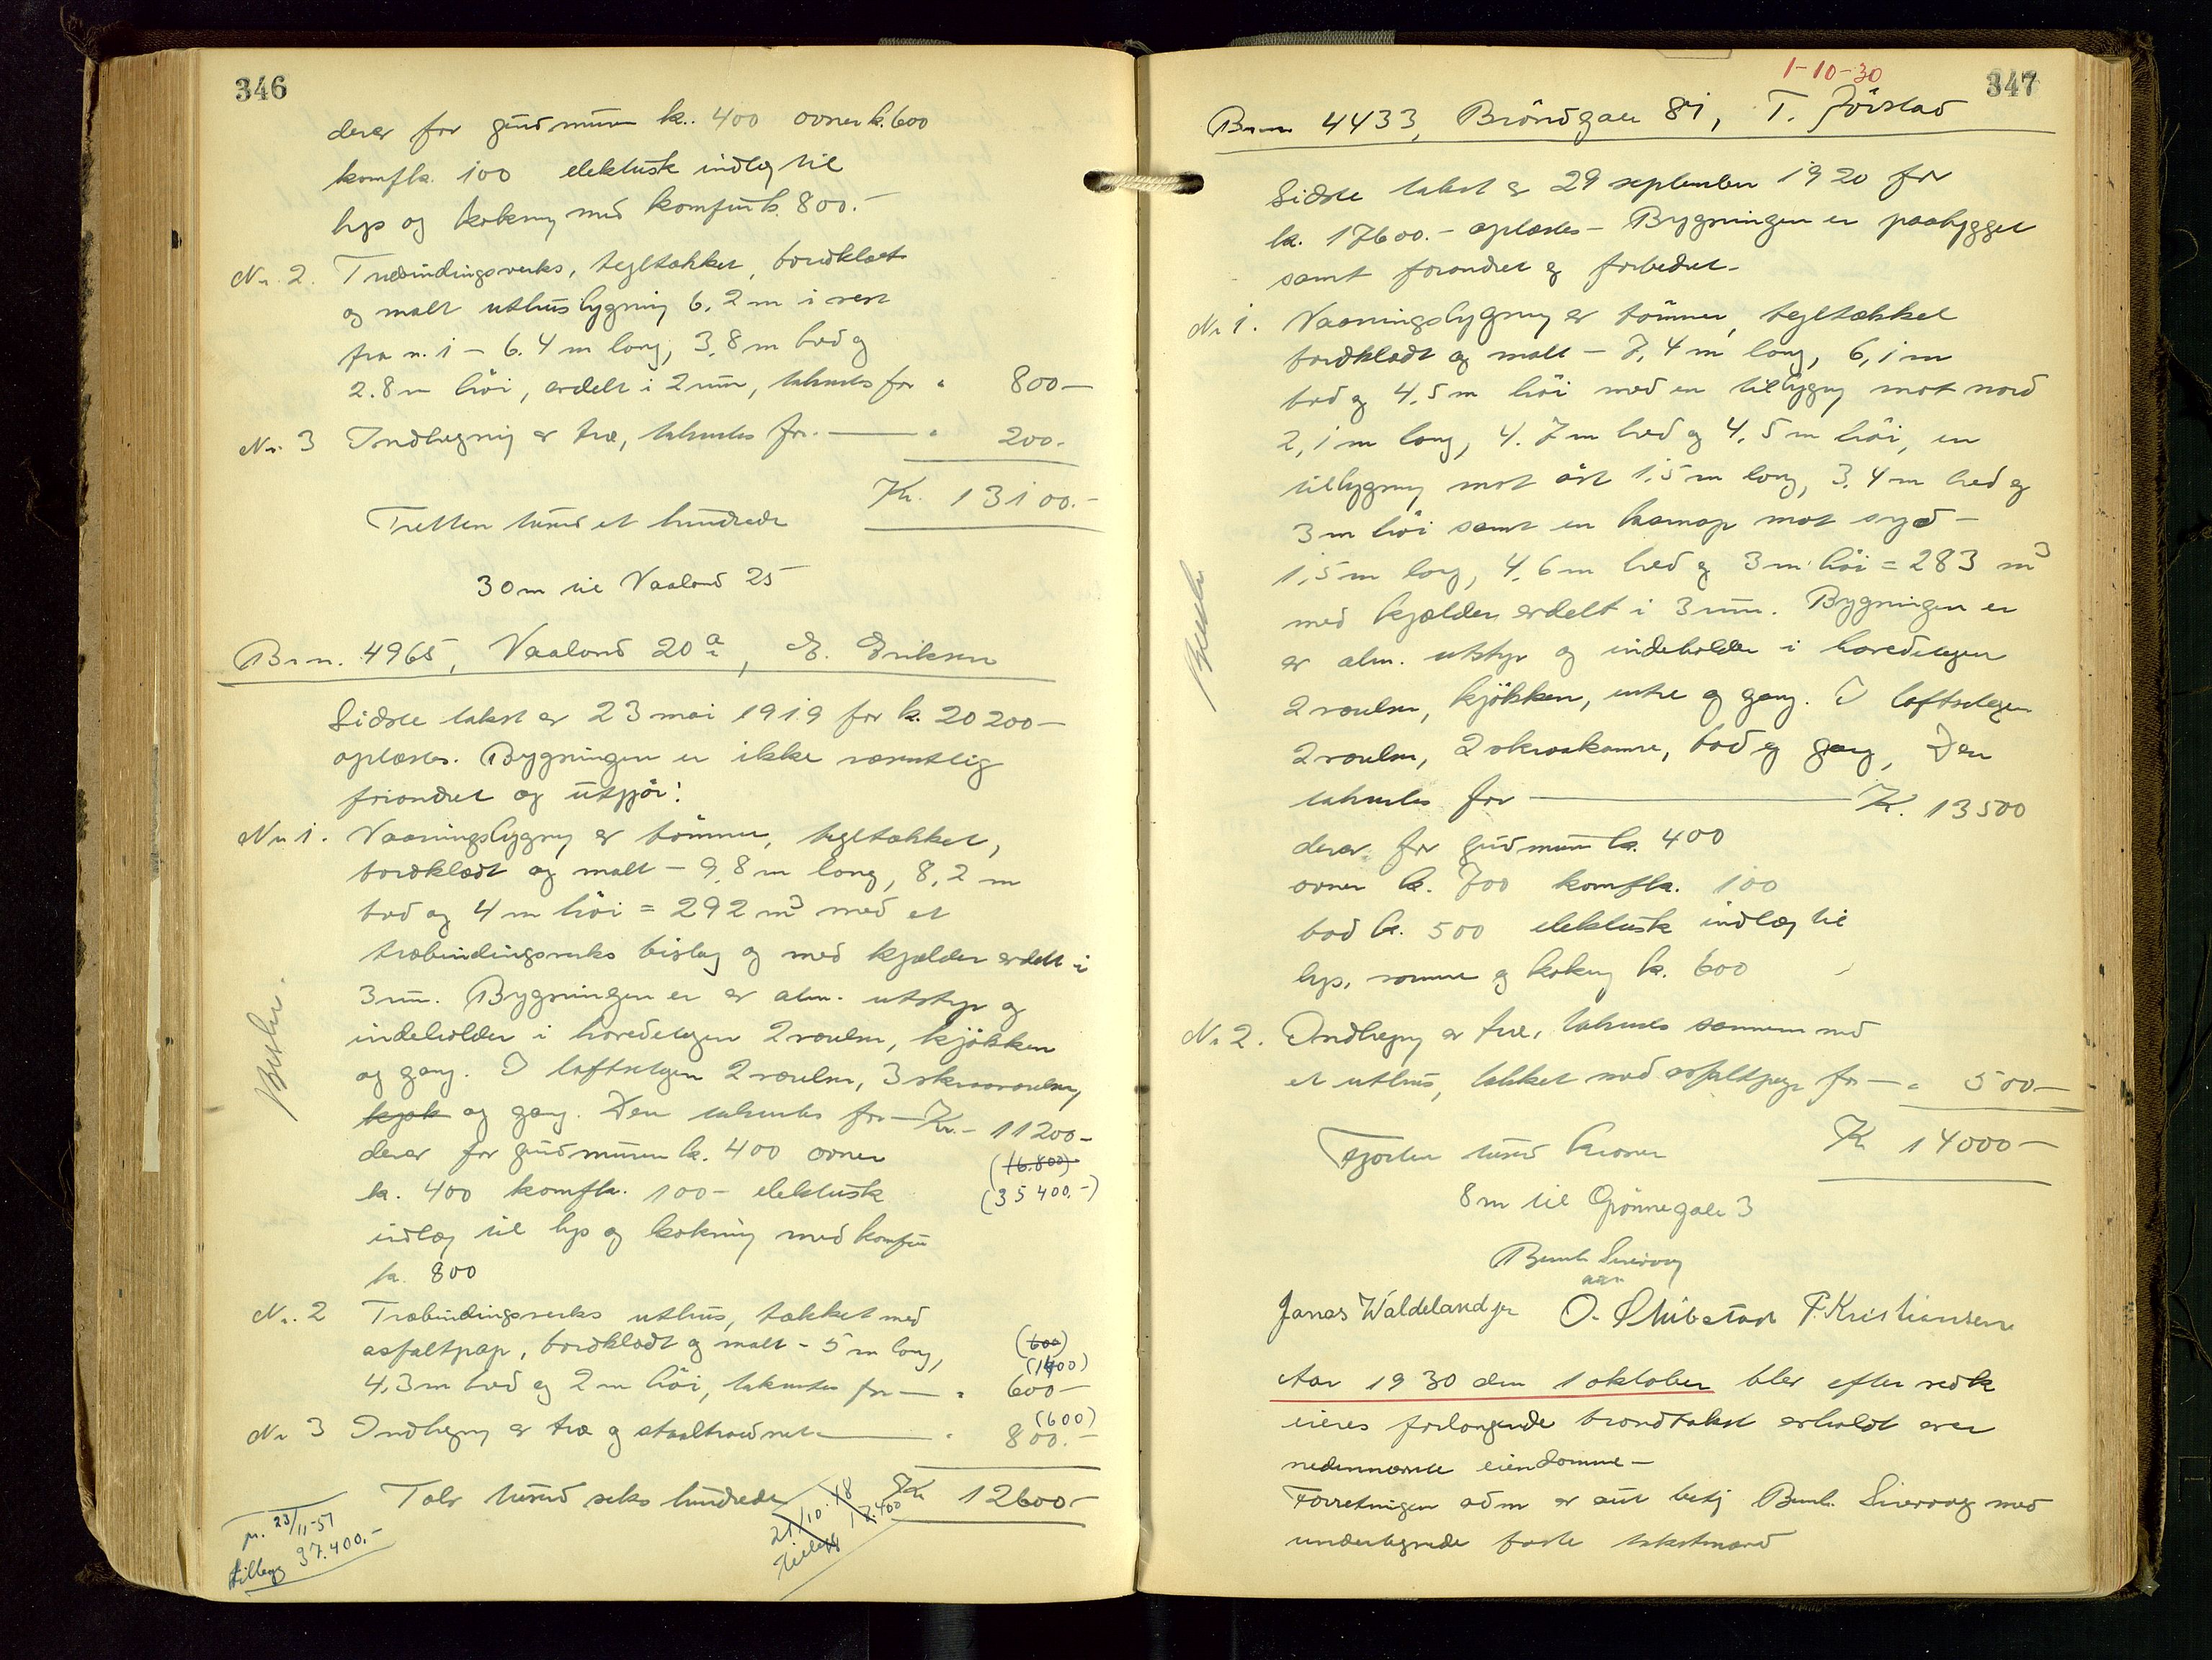 346
derav for grundmuren kr. 400 ovner kr. 600
komf kr. 100 elektrisk indlæg til
lys og kokning med komfur kr. 800.-
Nr. 2. Træbindingsverks, tegltækket, bordklædt
og malt uthusbygning 6.2 m i vest
fra nr. 1 - 6.4 m lang, 3,8 m bred og
2.8 m høi, avdelt i 2 rum, takseres for " 800 -
Nr. 3 Indhegning av træ, takseres for. — " 200.-
Kr. 13100.-
Tretten tusind et hundrede
30 m til Vaaland 25
Brnr. 4965, Vaaland 20 a, E. Eriksen
Sidste takst er 23 mai 1919 for kr. 20200 -
oplæstes. Bygningen er ikke væsentlig
forandret og utgjør:
Nr. 1. Vaaningsbygning av tømmer, tegltækket,
bordklædt og malt - 9,8 m lang, 8,2 m
bred og 4 m høi = 292 m3 med et
træbindingsverks bislag og med kjælder avdelt i
3 rum. Bygningen er av alm. utstyr og
indeholder i hovedetagen 2 værelser, kjøkken
og gang. I loftsetagen 2 værelser, 3 skraaværelser,
kjøk og gang. Den takseres for — Kr. - 11200 -
derav for grundmuren kr. 400 ovner (16.800)
kr. 400 komf kr. 100 - elektrisk (35400.-)
indlæg til lys og kokning med komfur
kr. 800
Nr. 2 Træbindingsverks uthus, tækket med
asfaltpap, bordklædt og malt - 5 m lang, (600)
(1400)
4.3 m bred og 2 m høi, takseres for — " 600 -
Nr. 3 Indhegning av træ og staaltraadnet — " (600) 800.-
Tolv tusind seks hundrede Kr 12600 -
21/10.48 17.400
pr. 23/11-51
tillegg 37.400.-
1-10-30
347
Brnr 4433, Brøndgate 81, T. Jørstad
Sidste takst er 29 september 1920 for
kr. 17600.- oplæstes - Bygningen er paabygget
samt forandret og forbedret -
Nr 1. Vaaningsbygning av tømmer, tegltækket
bordklædt og malt - 7,4 m lang, 6,1 m
bred og 4,5 m høi med en tilbygning mot nord
2,1 m lang, 4.7 m bred og 4,5 m høi, en
tilbygning mot øst 1,5 m lang, 3,4 m bred og
3 m høi samt en karnap mot syd -
1,5 m lang, 4,6 m bred og 3 m høi = 283 m3
med kjælder avdelt i 3 rum. Bygningen er
av alm. utstyr og indeholder i hovedetagen
2 værelser, kjøkken, entre og gang. I loftsetagen
2 værelser, 2 skraakamre, bad og gang, Den
takseres for — Kr. 13500
derav for grundmuren kr. 400
ovner kr. 700 komf kr. 100
bad kr. 500 elektrisk indlæg til
lys, varme og kokning kr. 600
Nr 2. Indhegning av træ, takseres sammen med
et uthus, tækket med asfaltpap for — " 500 -
Fjorten tusind kroner Kr 14000 -
8 m til Grønnegate 3
Jonas Waldeland jr O. Skibstad F. Kristiansen
Aar 1930 den 1 oktober blev efter vedk
eieres forlangende brandtakst avholdt over
nedennævnte eiendomme -
Forretningen adm av aut bestyr Bernh. Siversen med
undertegnede faste takstmænd